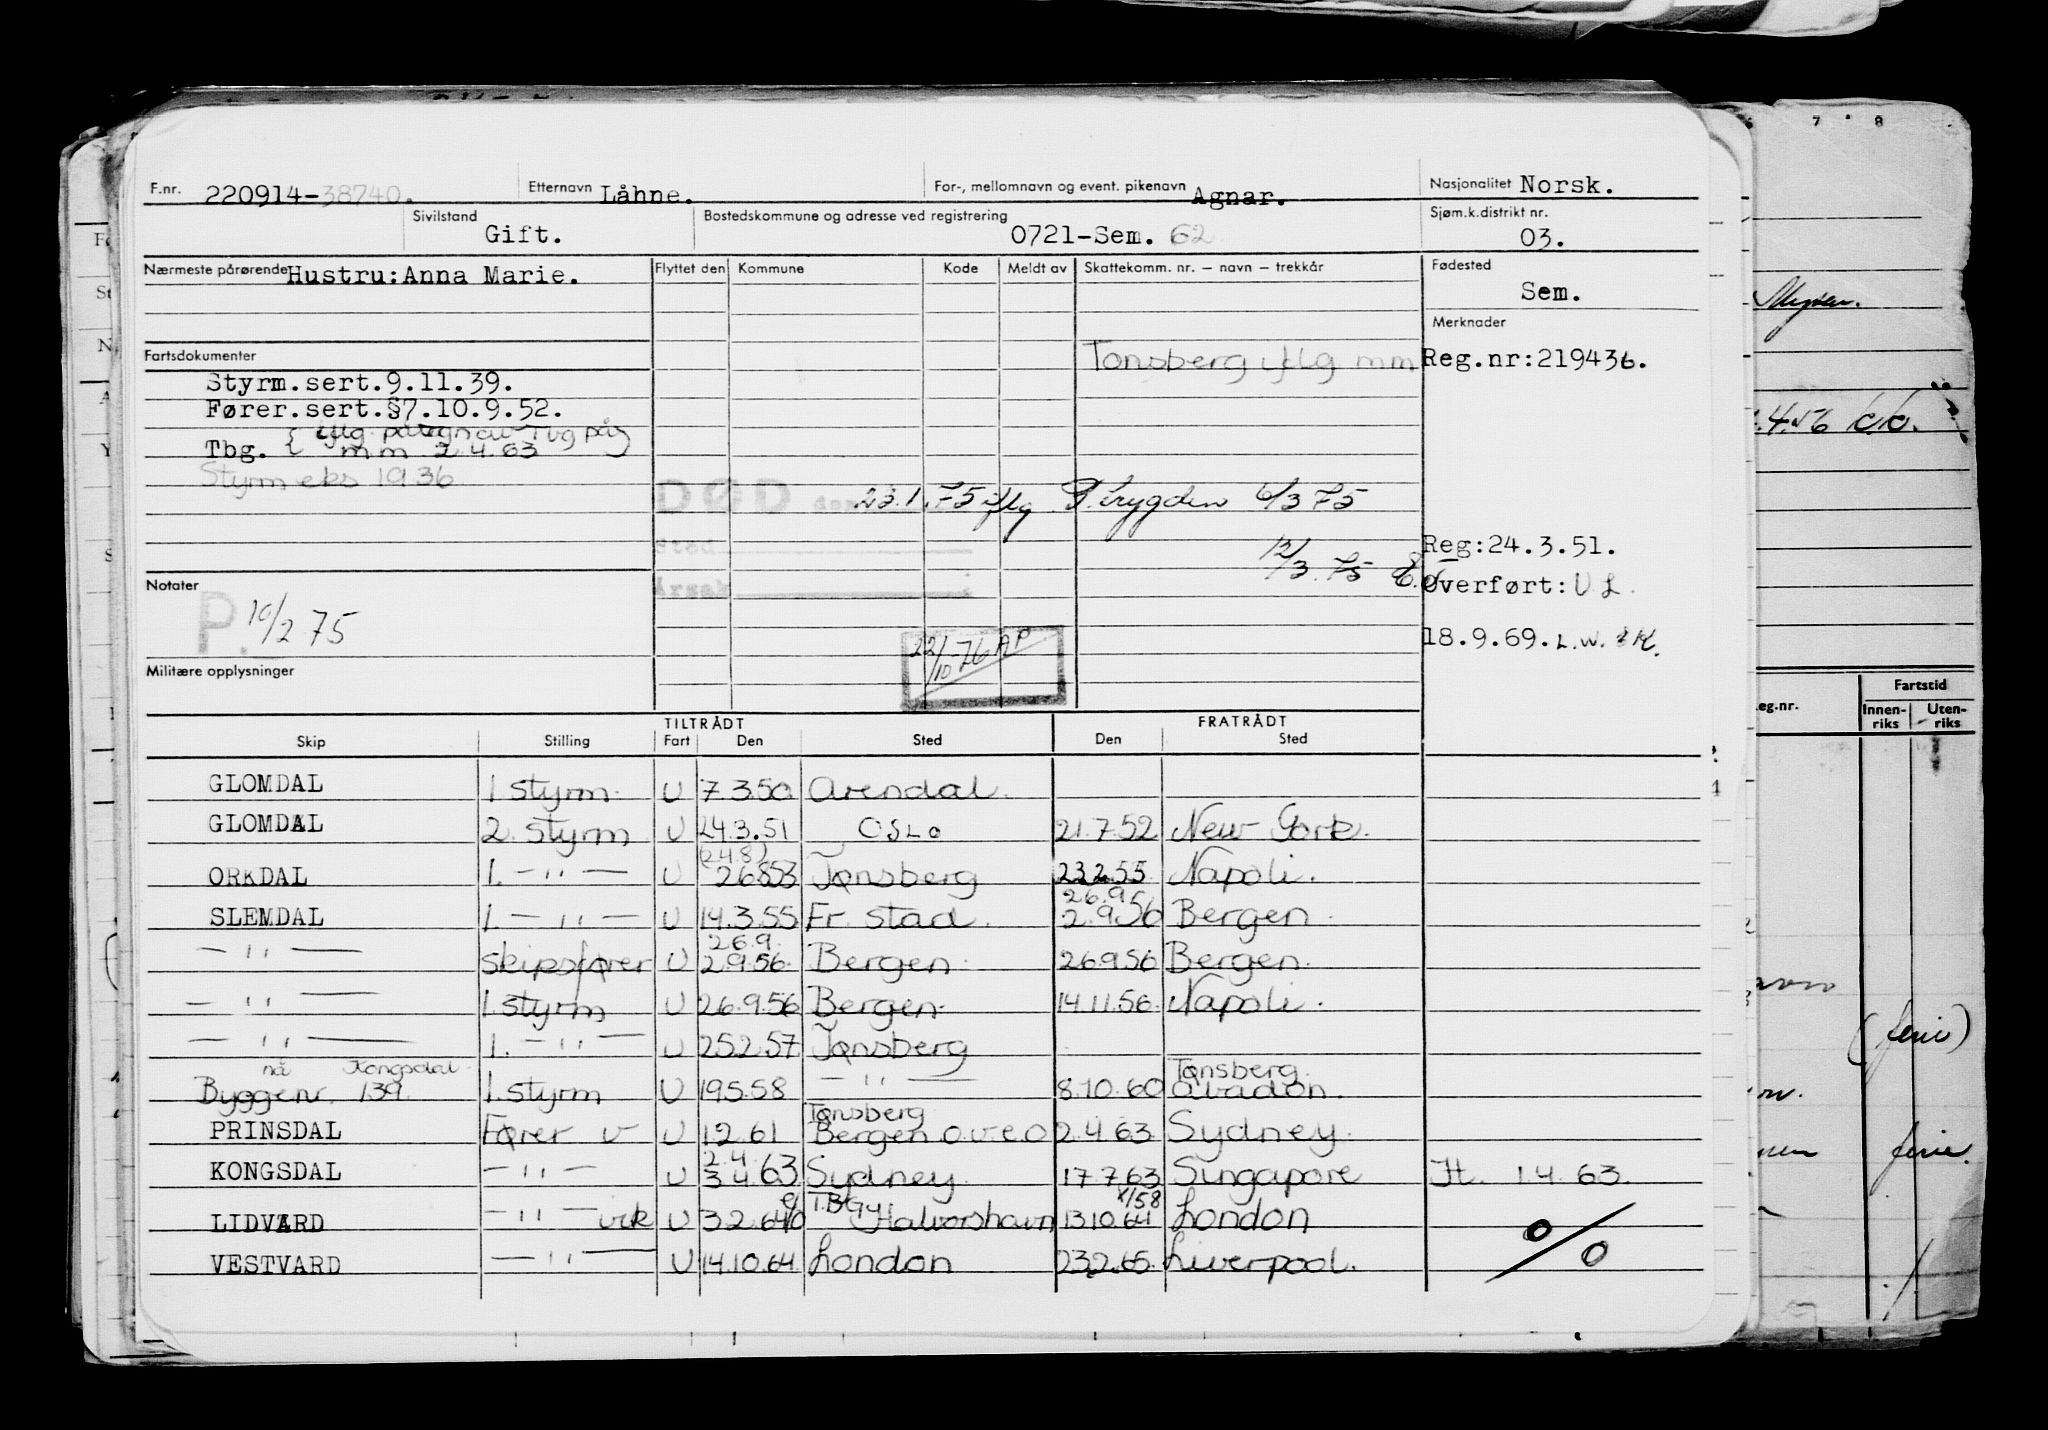 F.nr. 220914-38740. Etternavn Låhne. For-, mellomnavn og event. pikenavn Agnar. Nasjonalitet Norsk.
Sivilstand Gift. Bostedskommune og adresse ved registrering 0721-Sem. 62 Sjøm.k.distrikt nr. 03.
Nærmeste pårørende Hustru:Anna Marie. Flyttet den Kommune Kode Meldt av Skattekomm. nr. – navn – trekkår Fødested
Sem.
Merknader
Fartsdokumenter Tønsberg iflg mm Reg.nr:219436.
Styrm.sert.9.11.39.
Fører.sert.§7.10.9.52.
Tbg. { iflg. mm 2.4.63
Styrm eks 1936
DØD den 23.1.75 iflg R.trygden 6/3 75
Sted Reg:24.3.51.
12/3.75
Notater Årsak Overført: U L.
P. 10/2 75
22/10-76 AP 18.9.69. L.W.
Militære opplysninger
TILTRÅDT FRATRÅDT
Skip Stilling Fart Den Sted Den Sted
GLOMDAL 1. styrm. U 7.3.50 Arendal.
GLOMDAL 2. styrm U 24.3.51 OSLO 21.7.52 New York.
(24.8)
ORKDAL 1. — " — U 26.8.53 Tønsberg 23.2.55 Napoli.
26.9.
SLEMDAL 1. — " — U 14.3.55 Fr.stad. 2.9.56 Bergen.
26.9.
— " — skipsfører U 2.9.56. Bergen. 26.9.56 Bergen.
— " — 1. styrm U 26.9.56 Bergen. 14.11.56. Napoli.
— " — 1. — " — U 25.2.57 Tønsberg
nå Kongsdal Tønsberg.
Byggenr. 139. 1. styrm U 19.5.58 — " — 8.10.60 Abadan.
Tønsberg
PRINSDAL Fører v U 1.2.61 Bergen o.v.e.o 2.4.63 Sydney.
2.4.
KONGSDAL — " — U 3.4.63 Sydney. 17.7.63 Singapore Jt. 1.4.63.
LIDVARD — " — vik U 3.2.64 Halvorshavn 13.10.64 London
VESTVARD — " — U 14.10.64 London 23.2.65. Liverpool.
0/0
7 8
4.56
eg.nr. Fartstid
Innen-riks Uten-riks
(ferie)
ferie.